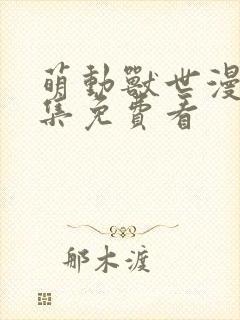 萌動獸世漫
集免費看
那木渡